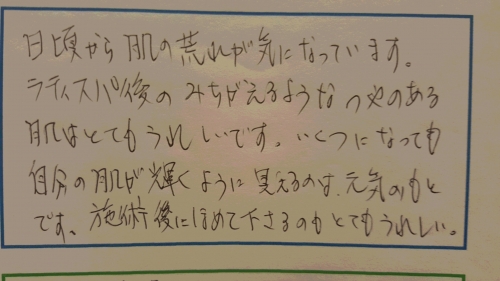 日頃から肌の荒れが気になっています。
ラディスパ後のみちがえるようなつやのある
肌はとてもうれしいです。いくつになっても
自分の肌が輝くように見えるのは、元気のもと
です。施術後にほめて下さるのもとてもうれしい。